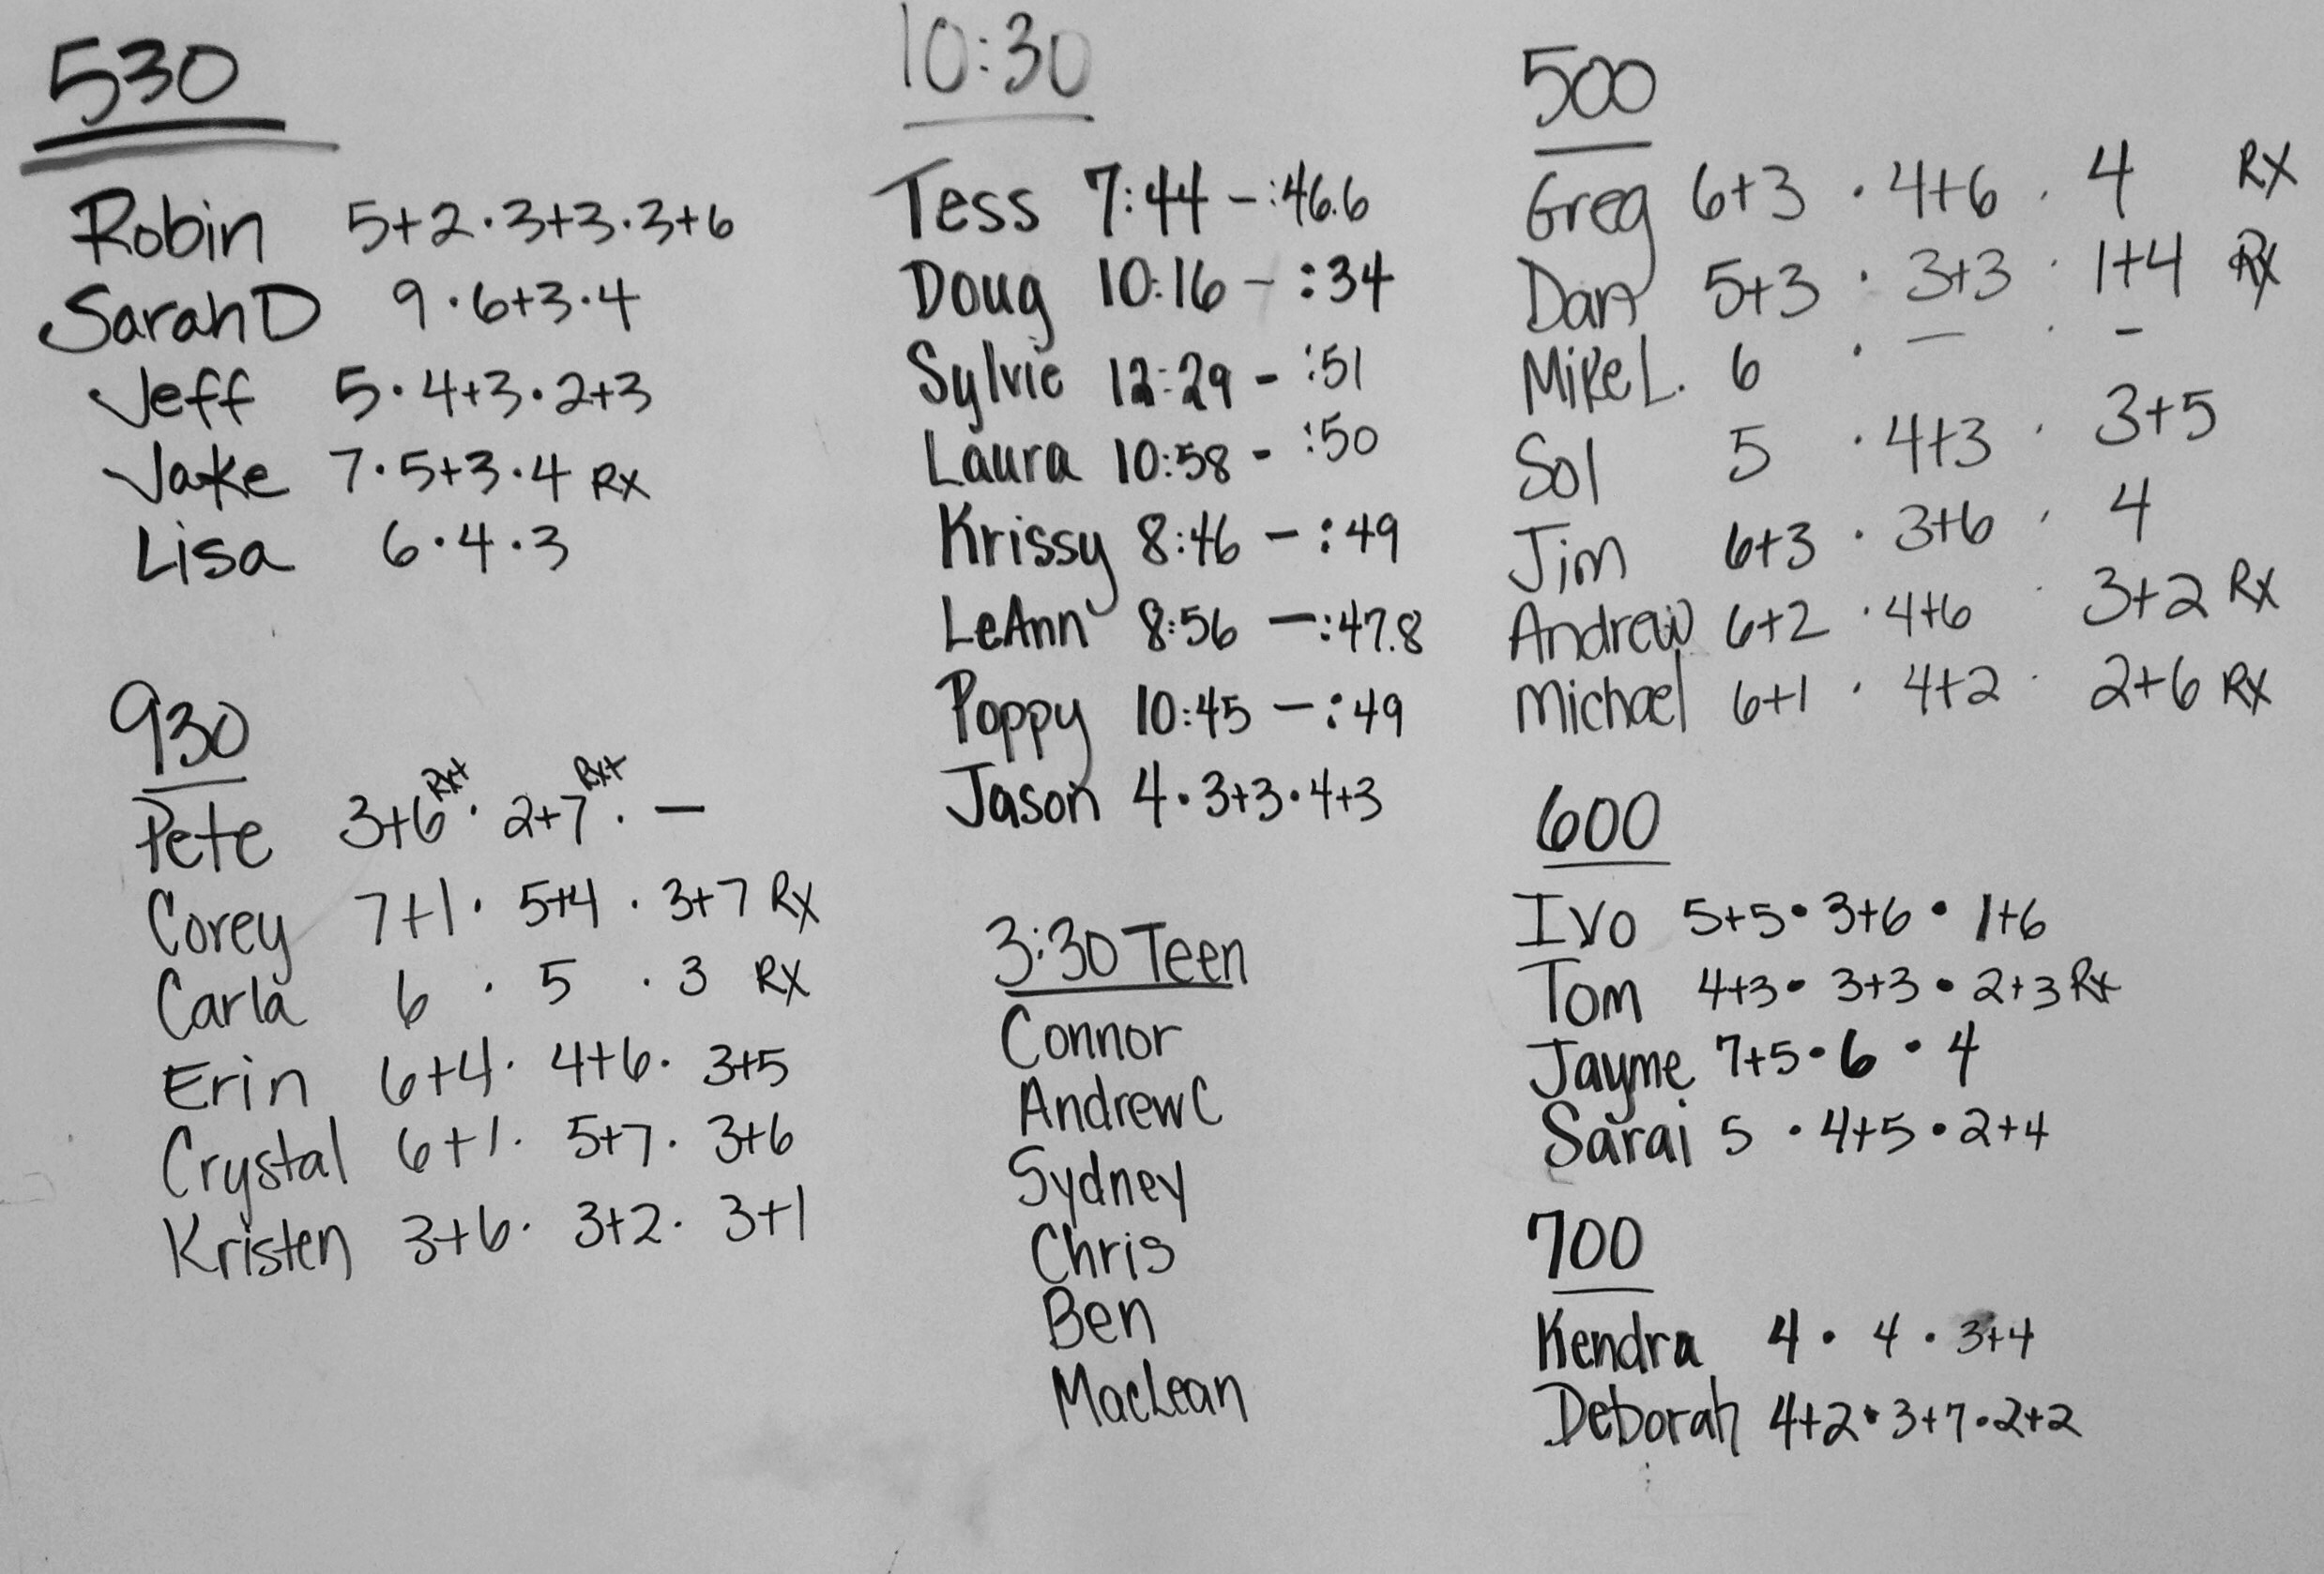 530
Robin 5+2·3+3·3+6
Sarah D 9·6+3·4
Jeff 5·4+3·2+3
Jake 7·5+3·4 Rx
Lisa 6·4·3
930
Pete 3+6 Rx+ · 2+7 Rx+ · —
Corey 7+1 · 5+4 · 3+7 Rx
Carla 6 · 5 · 3 Rx
Erin 6+4 · 4+6 · 3+5
Crystal 6+1 · 5+7 · 3+6
Kristen 3+6 · 3+2 · 3+1
10:30
Tess 7:44 – :46.6
Doug 10:16 – :34
Sylvie 12:29 - :51
Laura 10:58 - :50
Krissy 8:46 – :49
LeAnn 8:56 – :47.8
Poppy 10:45 – :49
Jason 4·3+3·4+3
3:30 Teen
Connor
Andrew C
Sydney
Chris
Ben
MacLean
500
Greg 6+3 · 4+6 · 4 Rx
Dan 5+3 · 3+3 · 1+4 Rx
Mike L. 6 · — · –
Sol 5 · 4+3 · 3+5
Jim 6+3 · 3+6 · 4
Andrew 6+2 · 4+6 · 3+2 Rx
Michael 6+1 · 4+2 · 2+6 Rx
600
Ivo 5+5 · 3+6 · 1+6
Tom 4+3 · 3+3 · 2+3 Rx
Jayme 7+5 · 6 · 4
Sarai 5 · 4+5 · 2+4
700
Kendra 4 · 4 · 3+4
Deborah 4+2 · 3+7 · 2+2